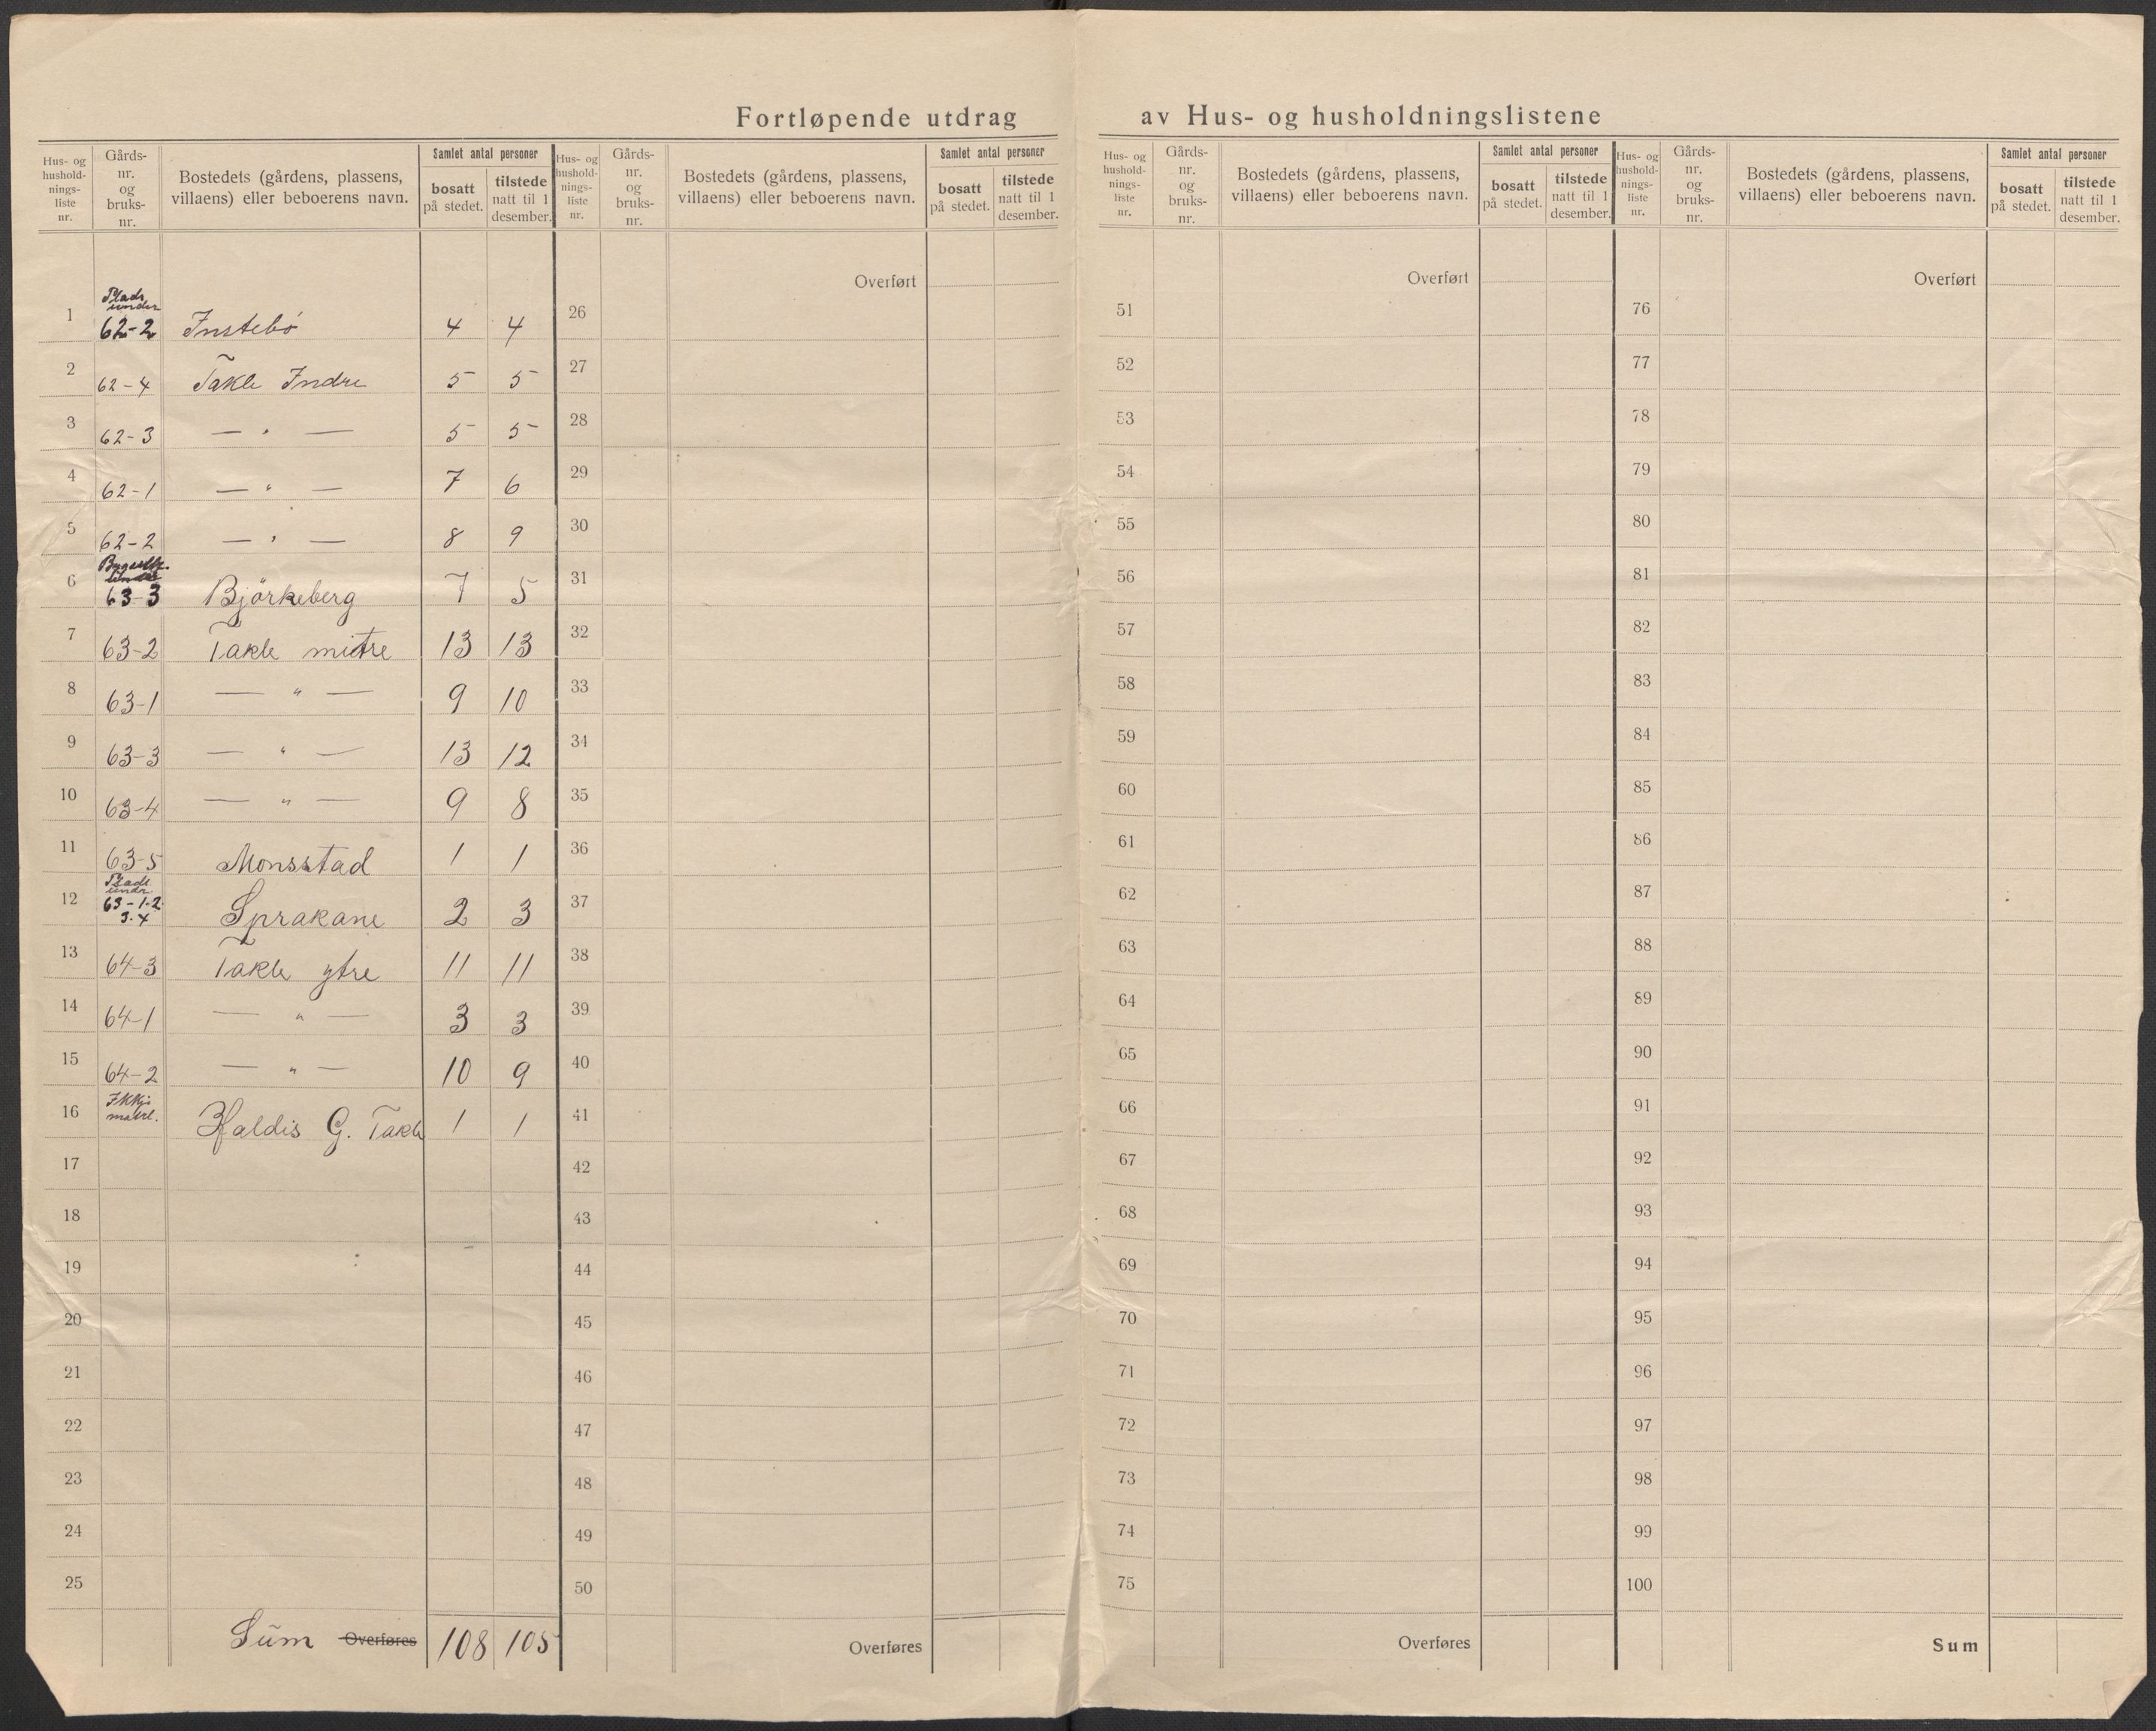 Fortløpende utdrag av Hus- og husholdningslistene
Hus- og hushold-nings-liste nr. | Gårds-nr. og bruks-nr. | Bostedets (gårdens, plassens, villaens) eller beboerens navn. | Samlet antal personer | bosatt på stedet. | tilstede natt til 1 desember.
Hus- og hushold-nings-liste nr. | Gårds-nr. og bruks-nr. | Bostedets (gårdens, plassens, villaens) eller beboerens navn. | Samlet antal personer | bosatt på stedet. | tilstede natt til 1 desember.
Hus- og hushold-nings-liste nr. | Gårds-nr. og bruks-nr. | Bostedets (gårdens, plassens, villaens) eller beboerens navn. | Samlet antal personer | bosatt på stedet. | tilstede natt til 1 desember.
Hus- og hushold-nings-liste nr. | Gårds-nr. og bruks-nr. | Bostedets (gårdens, plassens, villaens) eller beboerens navn. | Samlet antal personer | bosatt på stedet. | tilstede natt til 1 desember.
1 Plads under 62-2 Instebö 4 4
2 62-4 Takle Indre 5 5
3 62-3 — " — 5 5
4 62-1 — " — 7 6
5 62-2 — " — 8 9
6 under 63-3 Björkeberg 7 5
7 63-2 Takle mitre 13 13
8 63-1 — " — 9 10
9 63-3 — " — 13 12
10 63-4 — " — 9 8
11 63-5 Monsstad 1 1
12 Plads under 63-1.2 3.4 Sprakane 2 3
13 64-3 Takle ytre 11 11
14 64-1 — " — 3 3
15 64-2 — " — 10 9
16 Ikkje matrl. Haldis G. Takle 1 1
17
18
19
20
21
22
23
24
25
Sum Overføres 108 105
Overført
26
27
28
29
30
31
32
33
34
35
36
37
38
39
40
41
42
43
44
45
46
47
48
49
50
Overføres
Overført
51
52
53
54
55
56
57
58
59
60
61
62
63
64
65
66
67
68
69
70
71
72
73
74
75
Overføres
Overført
76
77
78
79
80
81
82
83
84
85
86
87
88
89
90
91
92
93
94
95
96
97
98
99
100
Sum